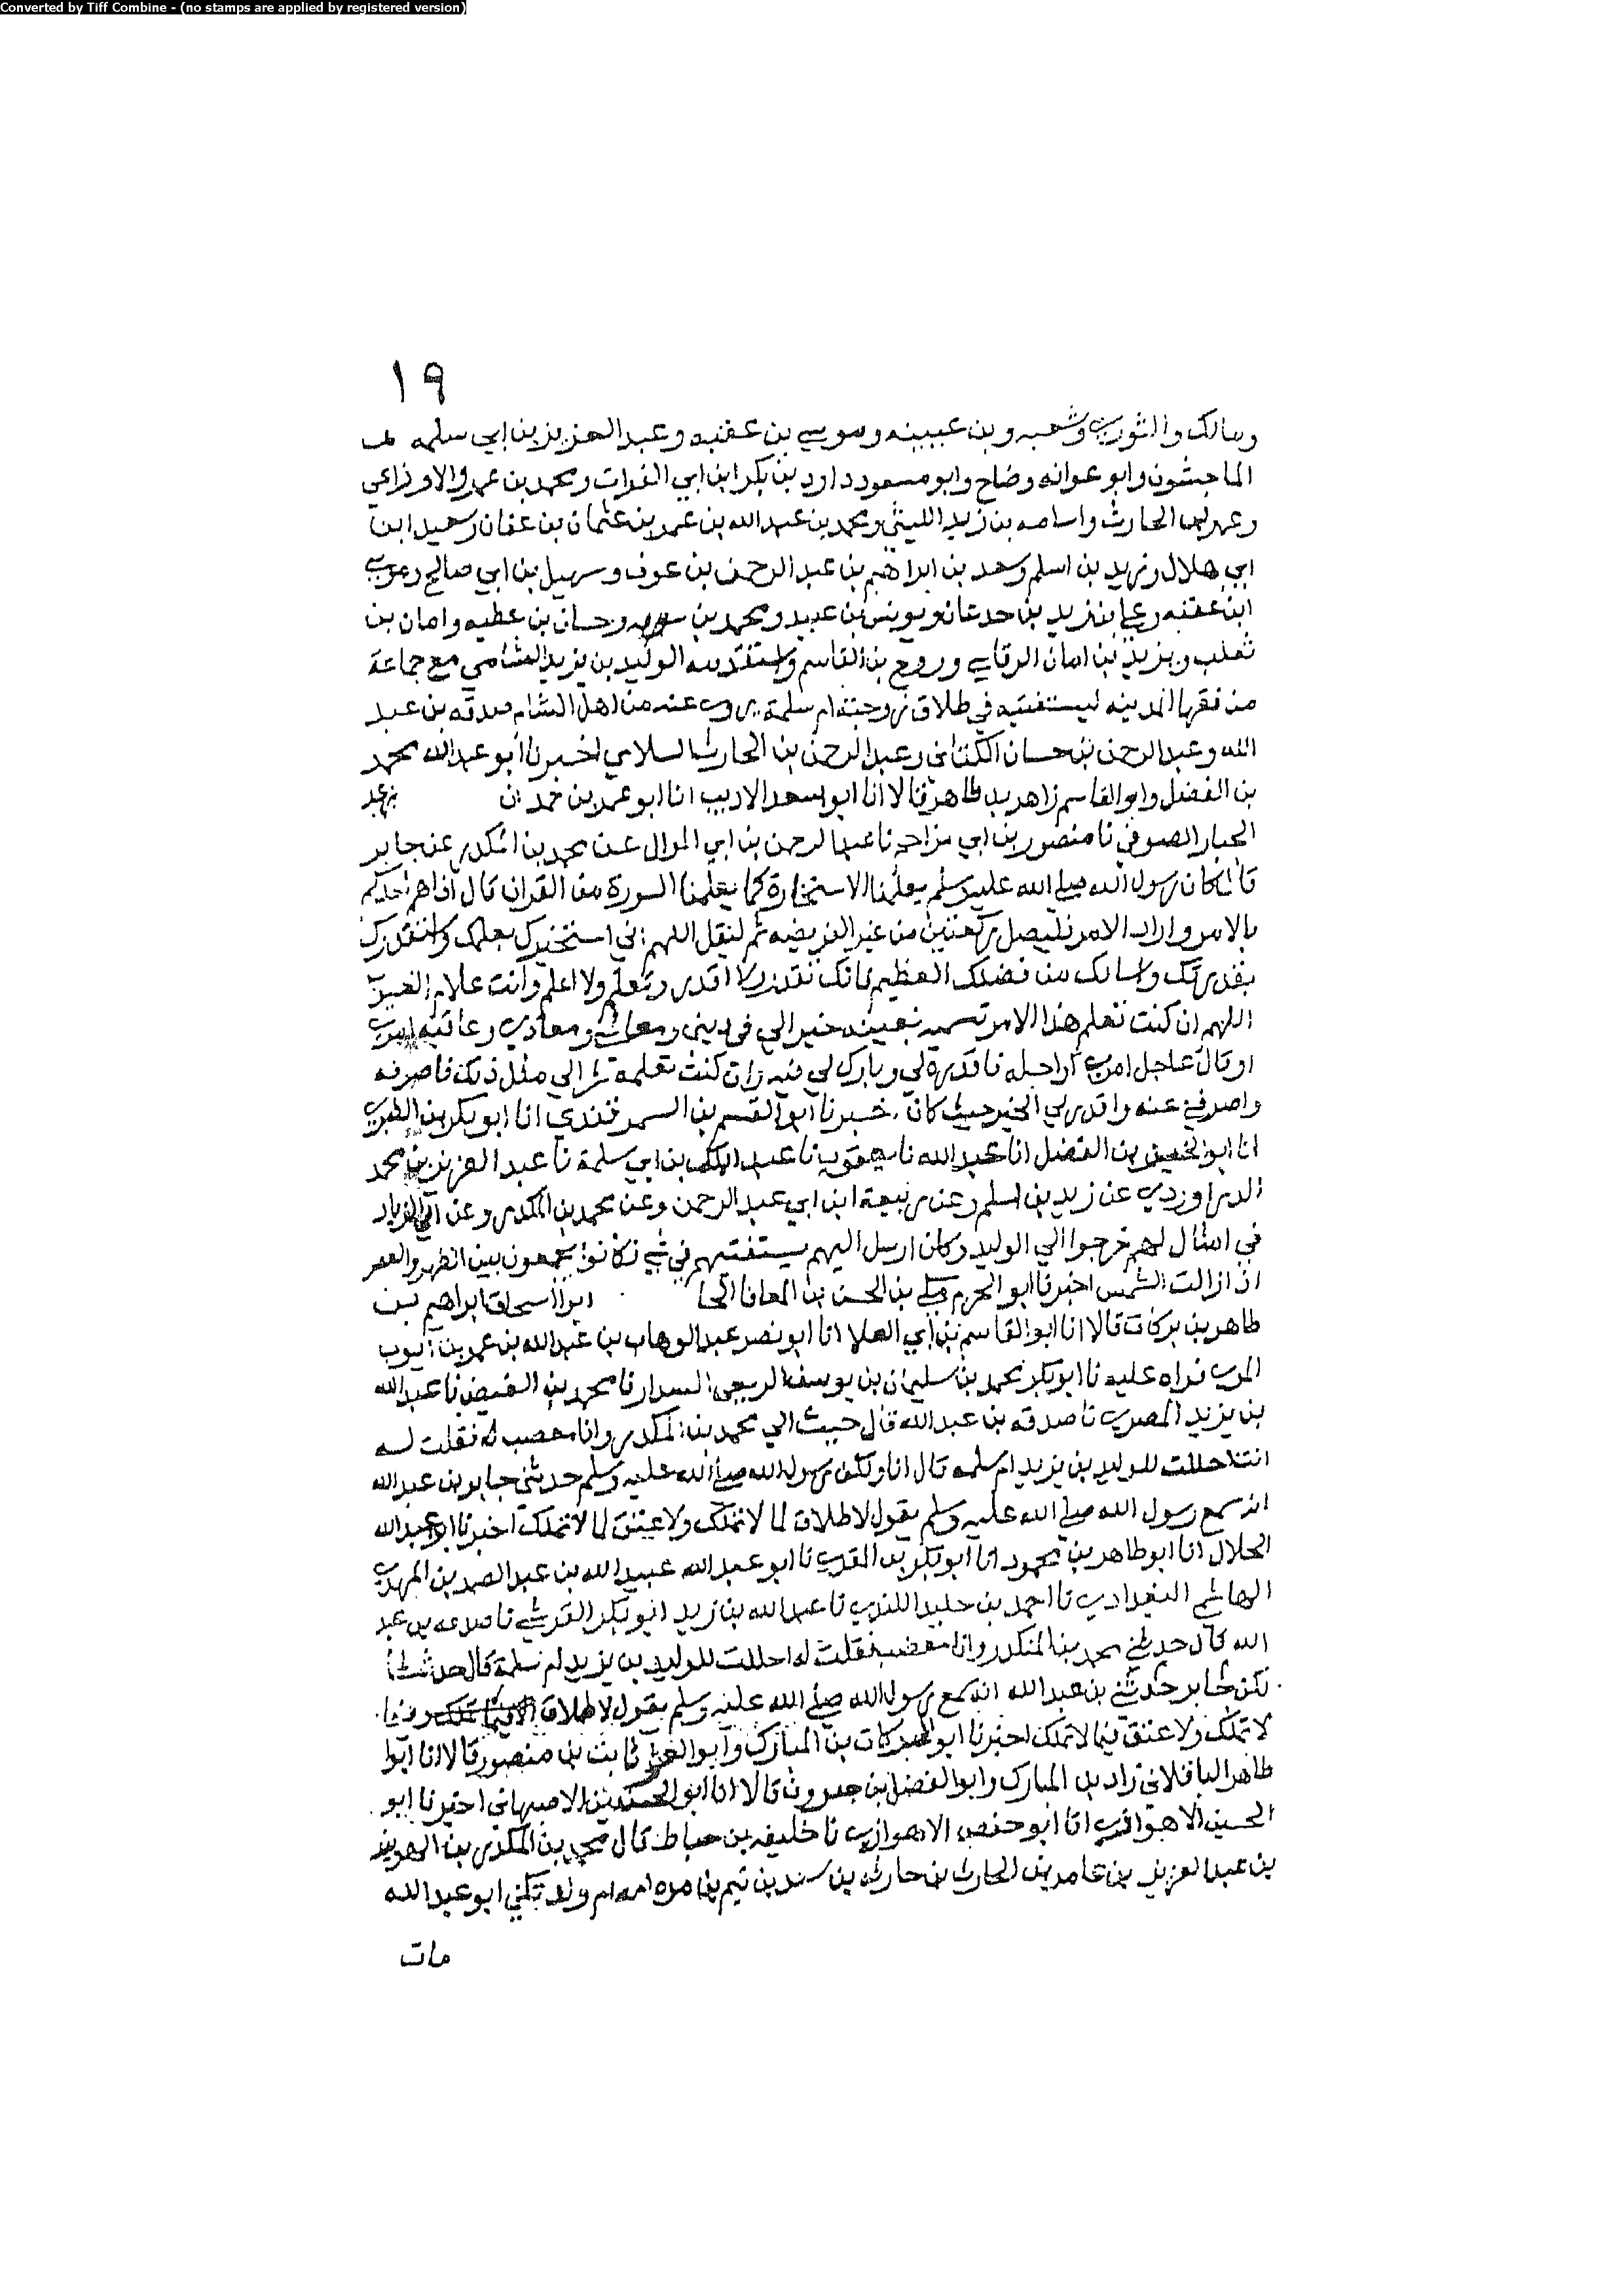 Converted by Tiff Combine - (no stamps are applied by registered version)
١٩
ومالك والثوري وشعبه وبن عيينه وموسي بن عقبه وعبد العزيز بن ابي سلمه
الماجشون وابو عوانه وضاح وابو مسعود داود بن بكر ابن ابي الفرات ومحمد بن عمرو الاوزاعي
وعمرو بن الحارث واسامه بن زيد الليثي ومحمد بن عبد الله بن عمرو بن عثمان بن عفان وسعيد ابن
ابي هلال وزيد بن اسلم وسعد بن ابراهيم بن عبد الرحمن بن عوف وسهيل بن ابي صالح
ابن عقبه وعلي بن زيد بن جدعان ويونس بن عبيد ومحمد بن وحسان بن عطيه وابان بن
تغلب ويزيد بن ابان الرقاشي وروح بن القاسم واستقدمه الوليد بن يزيد الشامي مع جماعة
من فقها المدينه ليستفتيه في طلاق زوجته ام سلمة روي عنه من اهل الشام صدقه بن عبد
الله وعبد الرحمن بن حسان الكناني وعبد الرحمن بن الحارث السلامي اخبرنا ابو عبد الله محمد
بن الفضل وابو القاسم زاهر بن طاهر قالا انا ابو سعد الاديب انا ابو عمرو بن حمدان بن عبد
الجبار الصوفي نا منصور بن ابي مزاحم نا عبد الرحمن بن ابي الموال عن محمد بن المنكدر عن جابر
قال كان رسول الله صلي الله عليه وسلم يعلمنا الاستخارة كما يعلمنا السورة من القران قال اذا هم احدكم
بالامر واراد الامر فليصل ركعتين من غير الفريضه ثم ليقل اللهم اني استخيرك بعلمك واستقدرك
بقدرتك واسالك من فضلك العظيم فانك تقدر ولا اقدر وتعلم ولا اعلم وانت علام الغيوب
اللهم ان كنت تعلم هذا الامر تسميه بعينه خير الي في ديني ومعاشي ومعادي وعاقبه امري
او قال عاجل امري اواجله فاقدره لي وبارك لي فيه وان كنت تعلمه شر الي مثل ذلك فاصرفه
واصرفني عنه واقدر لي الخير حيث كان اخبرنا ابو القسم بن السمرقندي انا ابو بكر بن الطبري
انا ابو الحسين بن الفضل انا عبد الله نا يعقوب نا عبد الملك بن ابي سلمة نا عبد العزيز بن محمد
الدراوردي عن زيد بن اسلم وعن ربيعة ابن ابي عبد الرحمن وعن محمد بن المنكدر وعن ابي الزناد
في امثال لهم خرجوا الي الوليد وكان ارسل اليهم يستفتيهم في شي فكانوا يجمعون بين الظهر والعصر
اذا زالت الشمس اخبرنا ابو الحرم مكي بن الحسن بن المعافا ابو اسحاق ابراهيم بن
طاهر بن بركات قالا انا ابو القاسم بن ابي العلا انا ابو نصر عبد الوهاب بن عبد الله بن عمر بن ايوب
المري قراه عليه نا ابو بكر محمد بن سليمان بن يوسف الربعي البندار نا محمد بن الفيض نا عبد الله
بن يزيد المصري نا صدقه بن عبد الله قال جيت الي محمد بن المنكدر وانا مغضب فقلت له
انت احللت للوليد بن يزيد ام سلمه قال انا ولكن رسول الله صلي الله عليه وسلم حدثني جابر بن عبد الله
انه سمع رسول الله صلي الله عليه وسلم يقول لا طلاق لما لا تملك ولا عتق لما لا تملك اخبرنا ابو عبد الله
الخلال انا ابو طاهر بن محمود انا ابو بكر بن المقري نا ابو عبد الله عبيد الله بن عبد الصمد بن المهتدي
الهاشم البغدادي نا احمد بن خليد الكندي نا عبد الله بن يزيد ابو بكر القرشي نا صدقه بن عبد
الله قال حدثني محمد بن المنكدر وانا مغضب فقلت له احللت للوليد بن يزيد ام سلمة قال
لكن جابر حدثني بن عبد الله انه سمع رسول الله صلي الله عليه وسلم يقول لا طلاق
لا تملك ولا عتق فيما لا تملك اخبرنا ابو البركات بن المبارك وابو العز ثابت بن منصور قالا انا ابو
طاهر الباقلاني زاد بن المبارك وابو الفضل بن خيرون قالا انا ابو الحسين الاصبهاني اخبرنا ابو
الحسين الاهوازي انا ابو حفص الاهوازي نا خليفه بن خياط قال محمد بن المنكدر بن الهدير
بن عبد العزيز بن عامر بن الحارث بن حارثه بن سعد بن تيم بن مره امه ام ولد يكني ابو عبد الله
مات